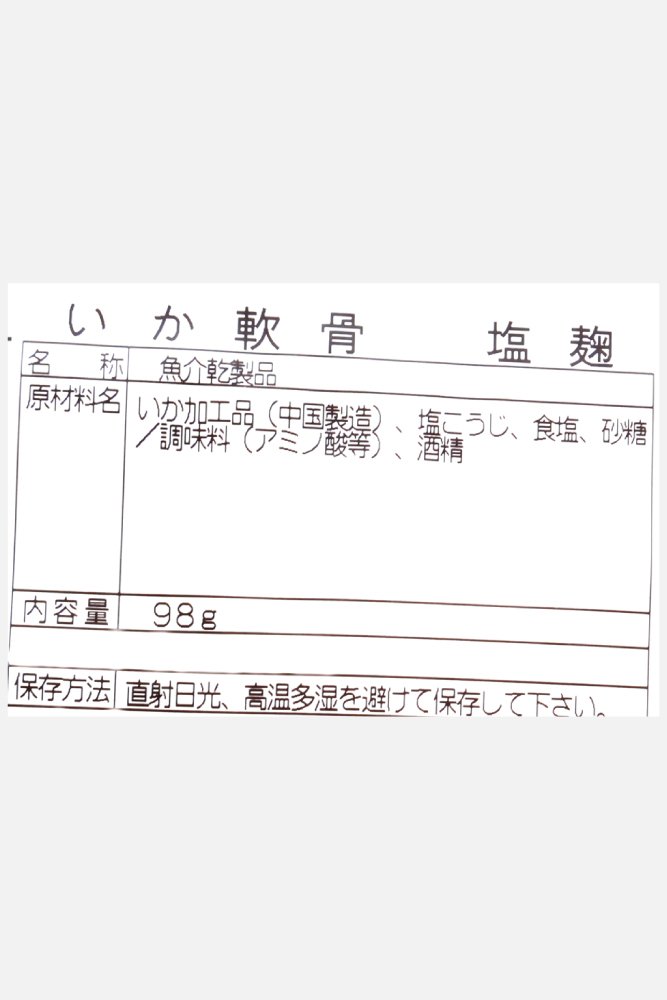 いか軟骨　塩麹
名称　魚介乾製品
原材料名　いか加工品（中国製造）、塩こうじ、食塩、砂糖
／調味料（アミノ酸等）、酒精
内容量　98g
保存方法　直射日光、高温多湿を避けて保存して下さい。